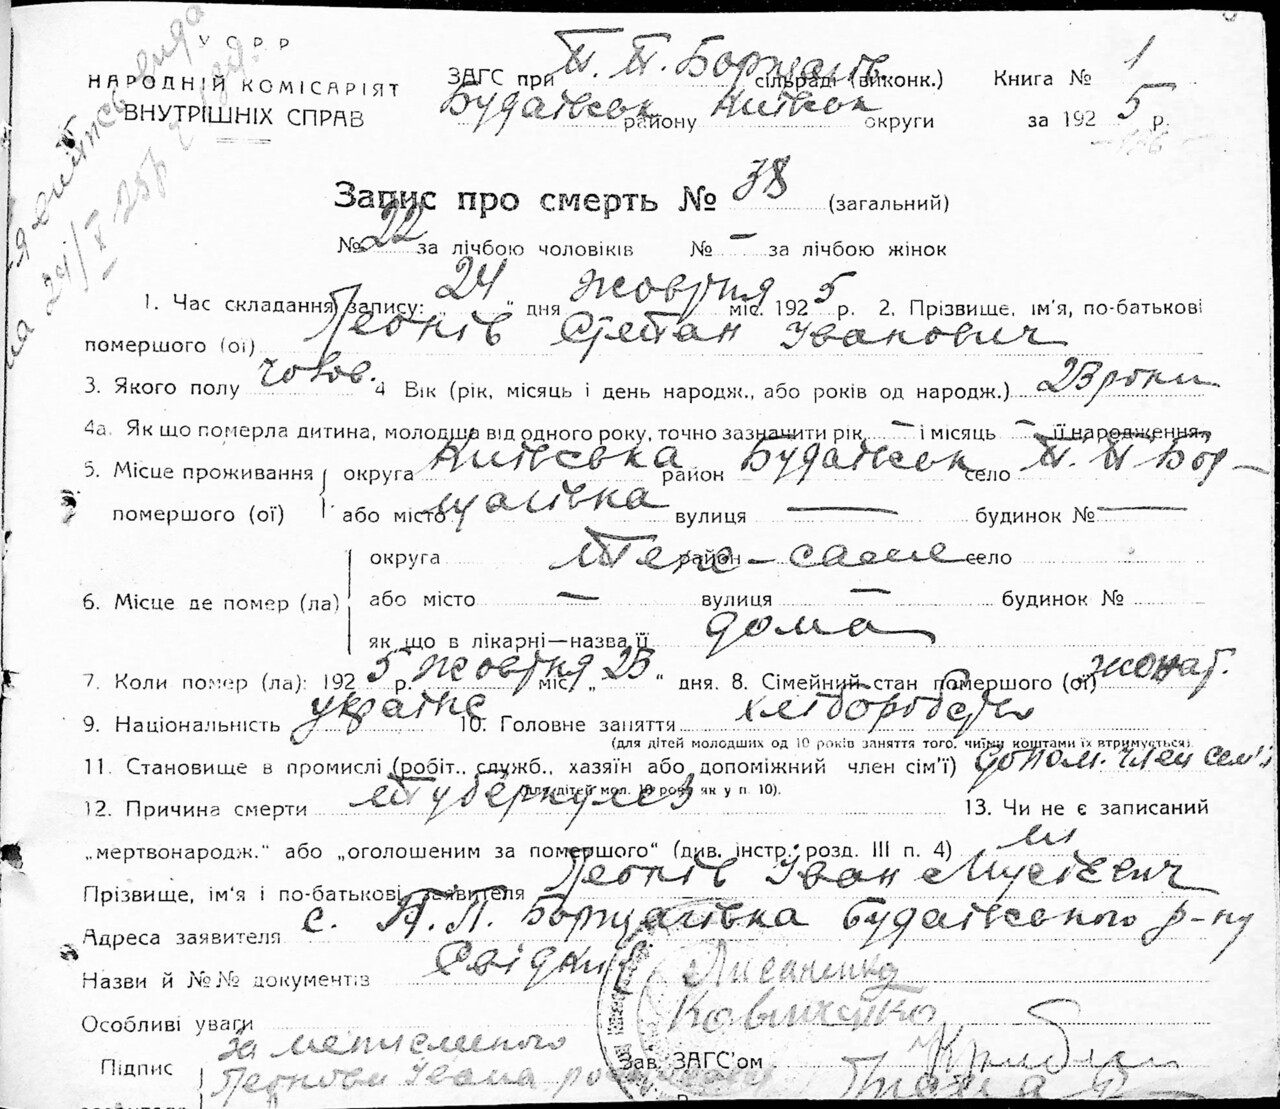 У С Р Р
НАРОДНІЙ КОМІСАРІЯТ
ВНУТРІШНІХ СПРАВ
ЗАГС при П. П. Борщагів. сільраді (виконк.)
Будаївськ району Київськ округи
Книга № 1
за 1925 р.
Запис про смерть № 38 (загальний)
№ 22 за лічбою чоловіків № – за лічбою жінок
1. Час складання запису: 24 " дня жовтня міс. 1925 р. 2. Прізвище, ім'я, по-батькові
помершого (ої) Леонів Степан Іванович
3. Якого полу чолов. 4 Вік (рік, місяць і день народж., або років од народж.) 23 роки
4а. Як що померла дитина, молодша від одного року, точно зазначити рік – і місяць – її народження
5. Місце проживання округа Київська район Будаївськ село П. П. Бор–
помершого (ої) або місто щагівка вулиця — будинок № —
округа район Теж-саме село
6. Місце де помер (ла) або місто — вулиця — будинок №
як що в лікарні—назва її дома
7. Коли помер (ла): 1925 р. жовтня міс. „ 23 " дня. 8. Сімейний стан помершого (ої) жонат.
9. Національність україне 10. Головне заняття хліборобство
(для дітей молодших од 10 років заняття того, чиїми коштами їх втримується).
11. Становище в промислі (робіт., служб., хазяїн або допоміжний член сім'ї) допом. член сем'ї
(для дітей мол. 10 років як у п. 10).
12. Причина смерти туберкулез 13. Чи не є записаний
„мертвонародж." або „оголошеним за помершого" (див. інстр. розд. III п. 4) ні
Прізвище, ім'я і по-батькові заявителя Леонів Іван Мусієвич
Адреса заявителя с. П. П. Борщагівка Будаївського р-ну
Назви й №№ документів Свідки Лисаненко
Особливі уваги
Підпис За неписьменного
Зав. ЗАГС'ом
Леонова Івана